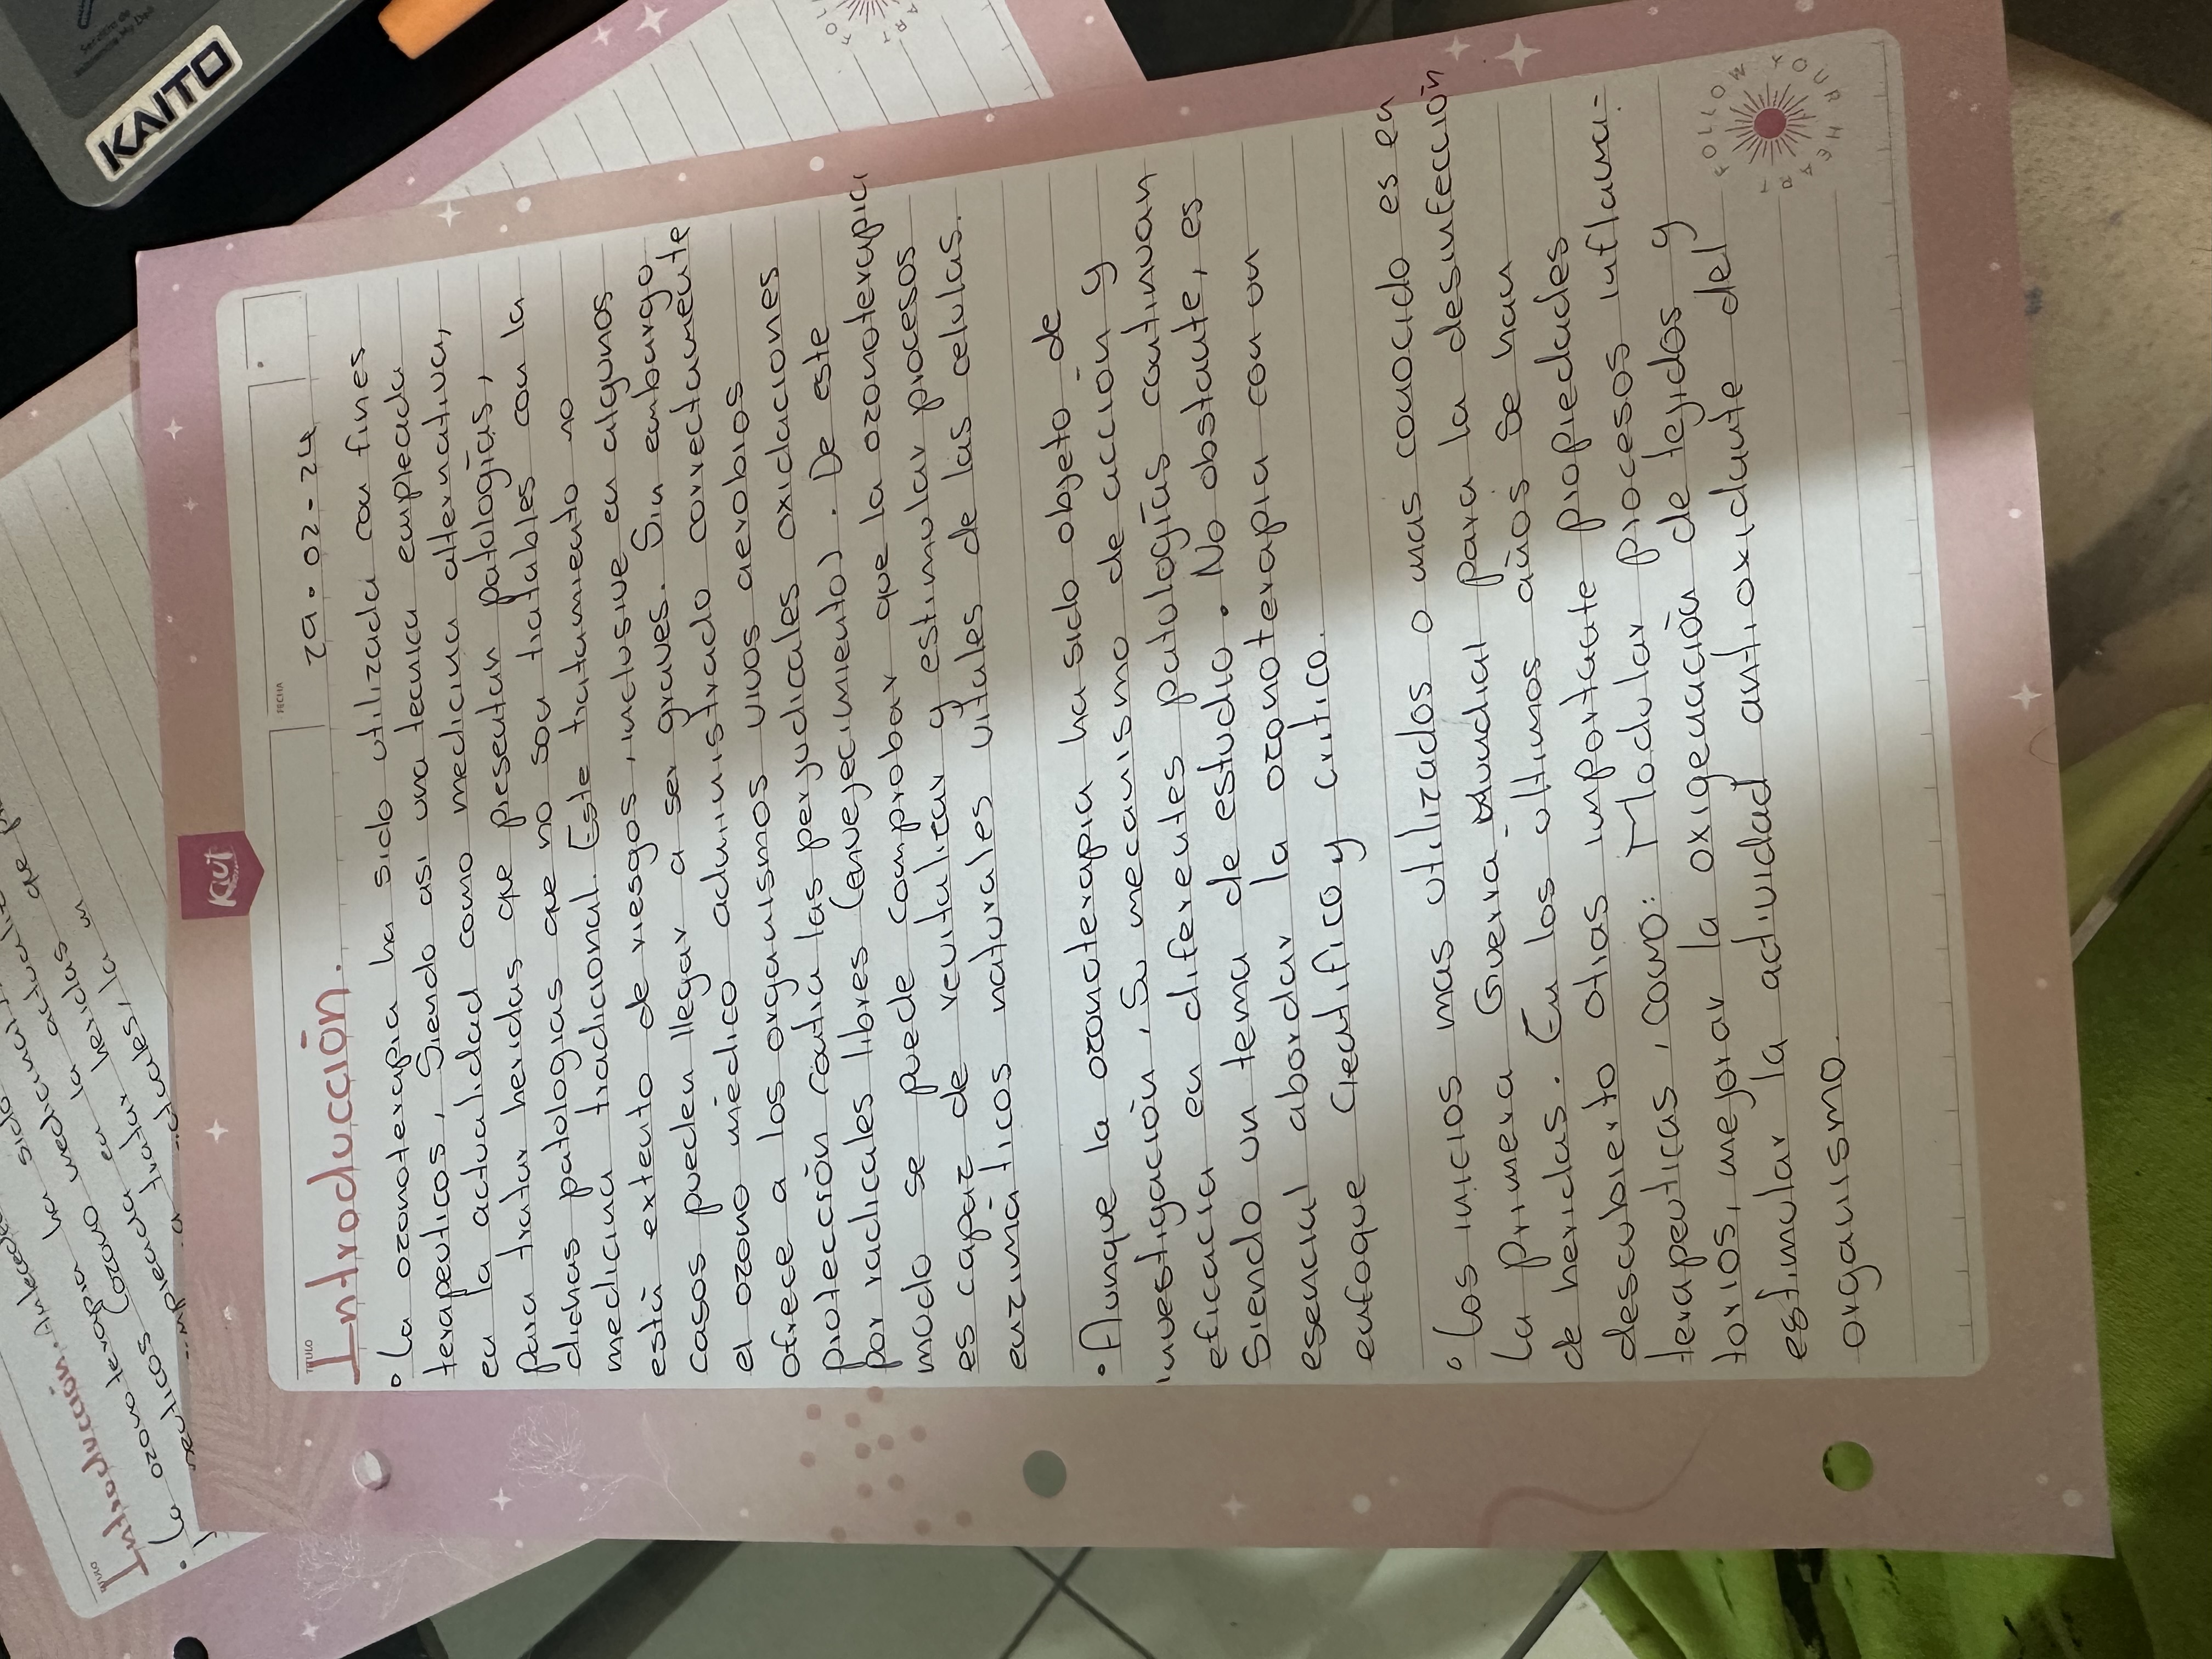 KAITO
Servicio de
FECHA
29.02-24
Kiut
TITULO
Introducción.
° La ozonoterapia ha sido utilizada con fines
terapeuticos, Siendo asi una tecnica empleada
en la actualidad como medicina alternativa,
para tratar heridas que presentan patologías,
dichas patologias que no son tratables con la
medicina tradicional. Este tratamiento no
está extento de riesgos, inclusive en algunos
casos pueden llegar a ser graves. Sin embargo
el ozono médico administrado correctamente
ofrece a los organismos vivos aerobios
protección contra las perjudicales oxidaciones
por radicales libres (envejecimiento). De este
modo se puede comprobar que la ozonoterapia
es capaz de revitalizar y estimular procesos
enzimáticos naturales vitales de las celulas.
• Aunque la ozonoterapia ha sido objeto de
investigación, Su mecanismo de acción y
eficacia en diferentes patologías continuan
Siendo un tema de estudio. No obstante, es
esencial abordar la ozonoterapia con un
enfoque Cientifico y critico.
° Los inicios mas utilizados o mas conocido es en
la primera Guerra Mundial para la desinfección
de heridas. En los ultimos años Se han
descubierto otras importante propiedades
terapeuticas, como: Modular procesos inflama-
torios, mejorar la oxigenación de tejidos y
estimular la actividad antioxidante del
organismo.
FOLLOW YOUR HEART
TITULO
Introducción.